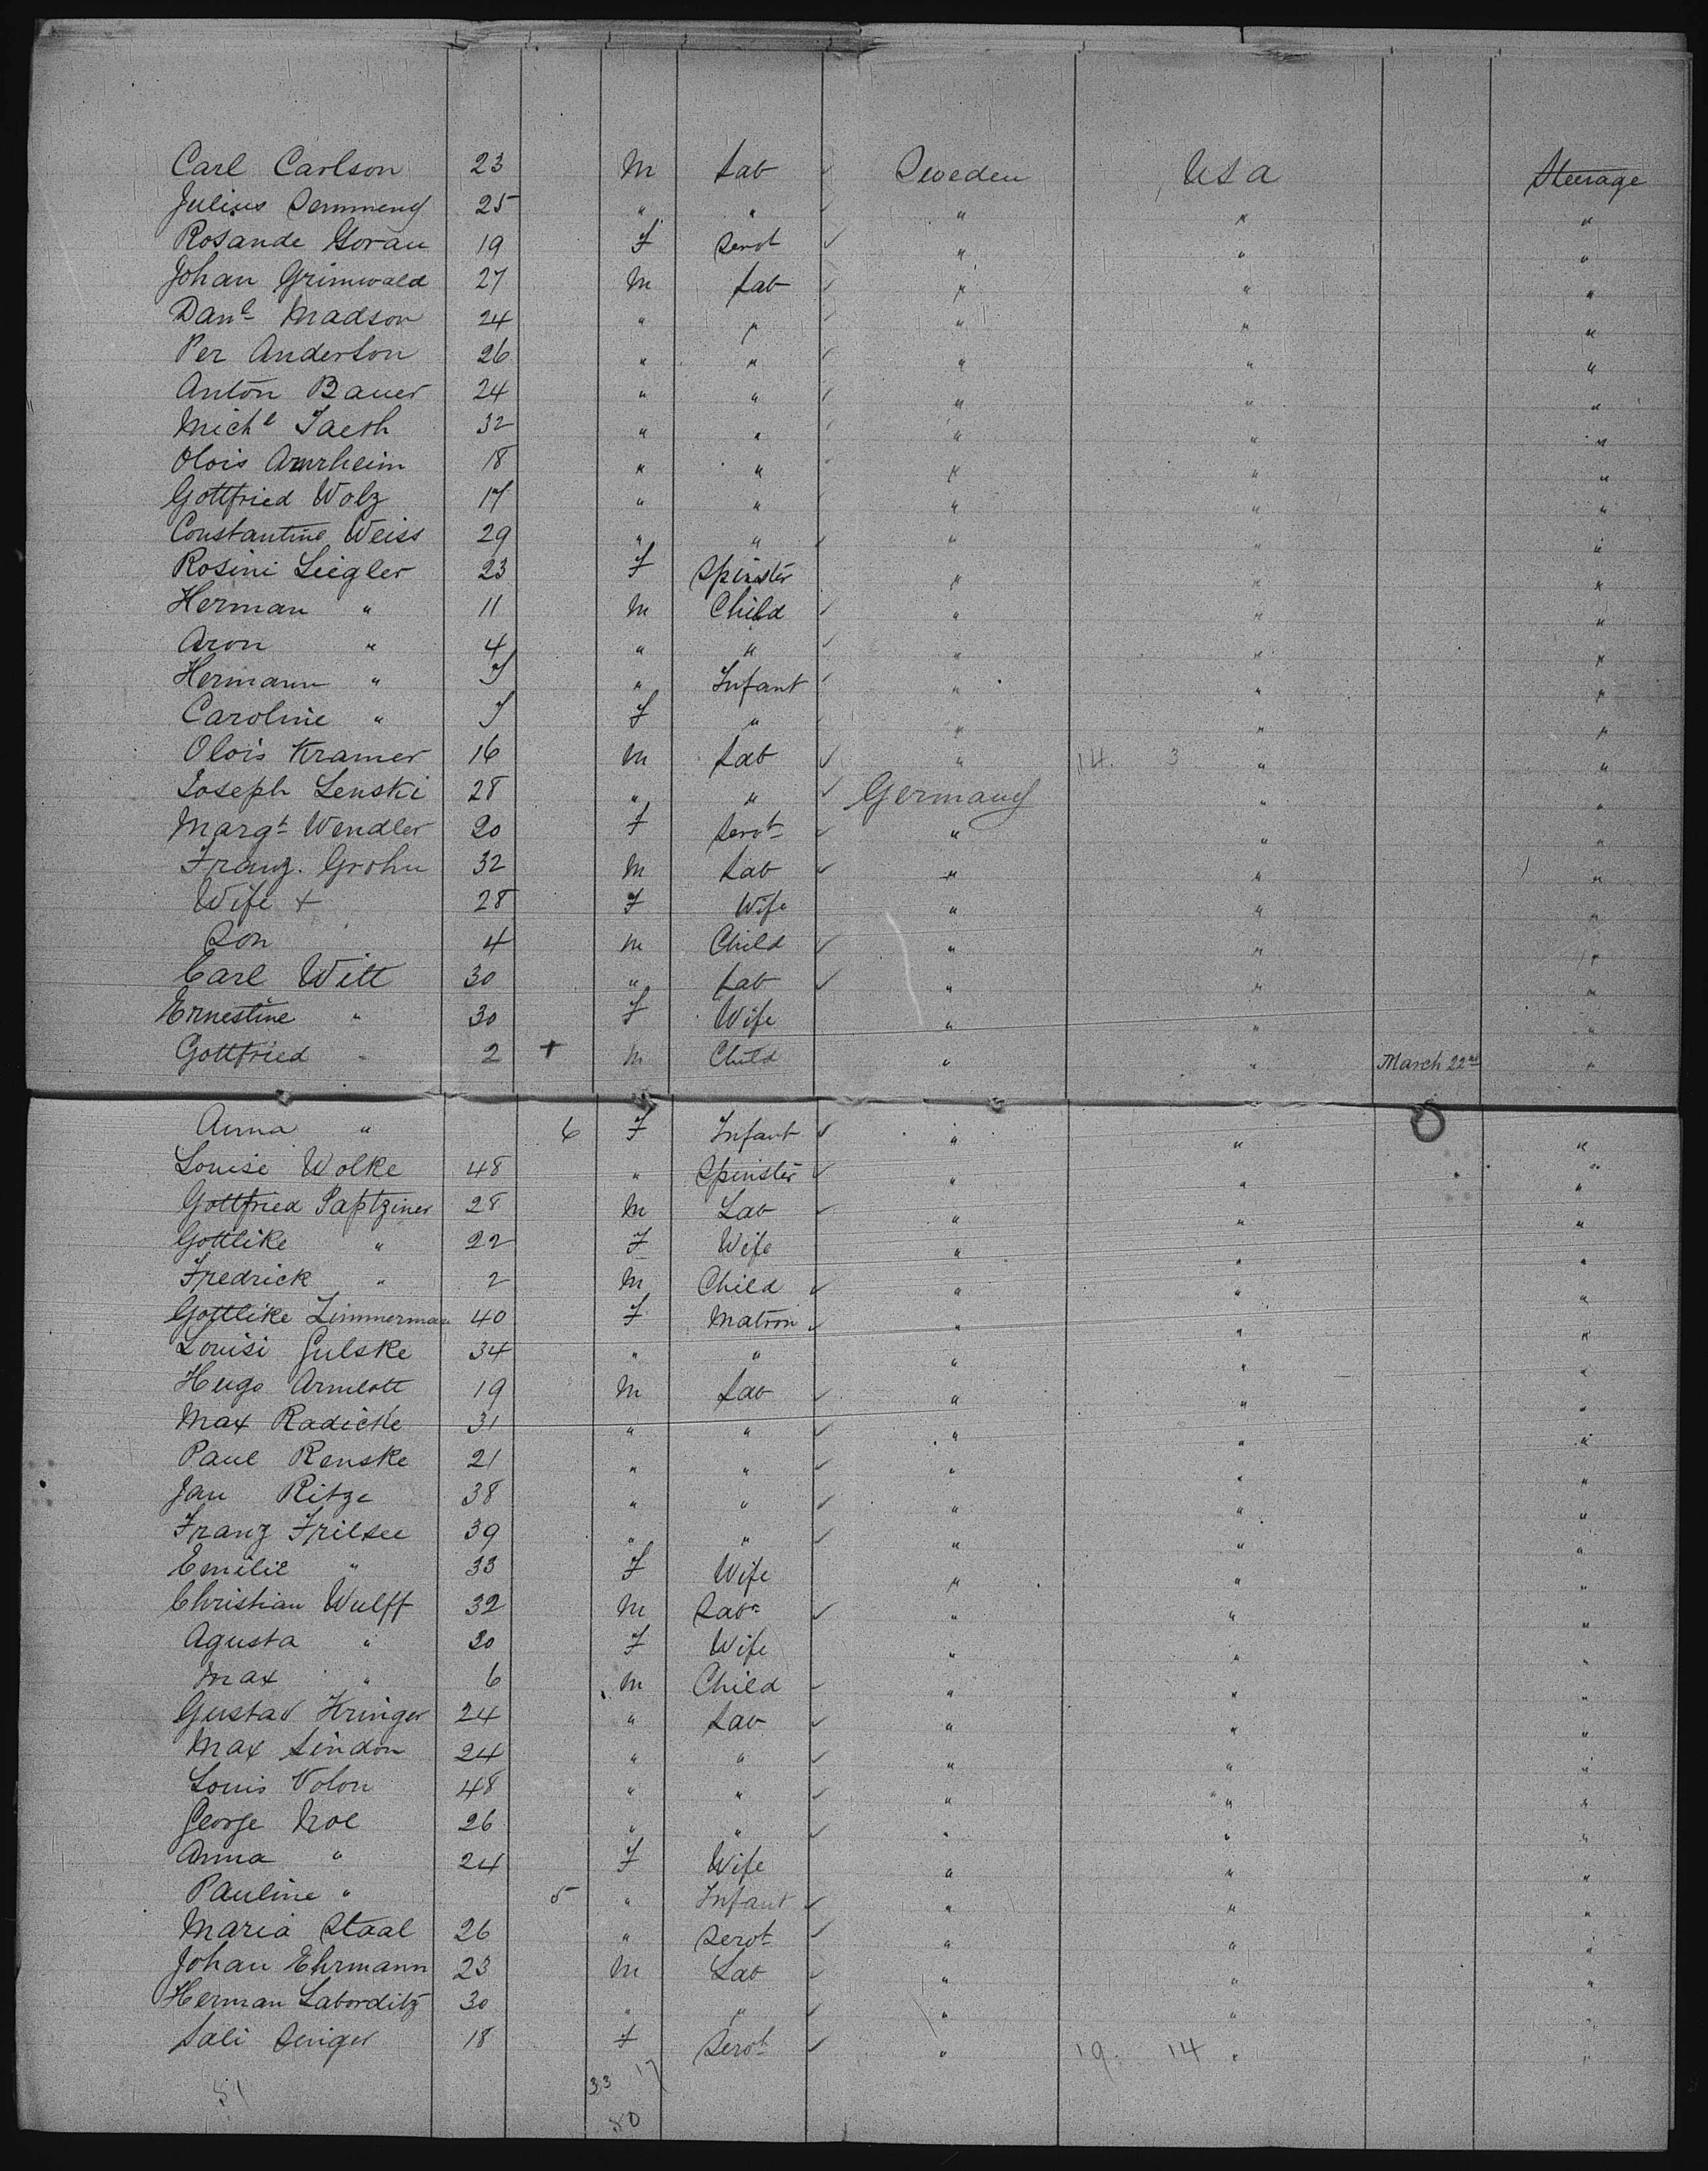 Carl Carlson 23 M Lab ✓ Sweden USA Steerage
Julius 25 " " ✓ " " "
Rosande Goran 19 F Servt ✓ " " "
Johan Grimwald 27 M Lab ✓ " " "
Danl Madson 24 " " ✓ " " "
Per Anderson 26 " " ✓ " " "
Anton Bauer 24 " " ✓ " " "
Michl 32 " " " " "
Olois Amrheim 18 " " " " "
Gottfried Wolz 17 " " " " "
Constantine Weiss 29 " " ✓ " " "
Rosini Liegler 23 F Spinster " " "
Herman " 11 M Child ✓ " " "
Aron " 4 " " ✓ " " "
Hermann " I " Infant ✓ " " "
Caroline " I F " " " "
Olois Kramer 16 M Lab ✓ " 14. 3 " "
Joseph Lenski 28 " " ✓ Germany " "
Margt Wendler 20 F Servt ✓ " " "
Franz. Grohn 32 M Lab ✓ " " "
Wife + 28 F Wife " " "
Son 4 M Child ✓ " " "
Carl Witt 30 " Lab ✓ " " "
Ernestine " 30 F Wife " " "
Gottfried " 2 + M Child " " March 22nd "
Anna " 6 F Infant ✓ " " "
Louise Wolke 48 " Spinster ✓ " " "
Gottfried Paptziner 28 M Lab ✓ " " "
Gottlike " 22 F Wife " " "
Fredrick " 2 M Child ✓ " " "
Gottlike Zimmerman 40 F Matron ✓ " " "
Louisi Gulske 34 " " " " "
Hugo 19 M Lab ✓ " " "
Max Radicke 31 " " ✓ " " "
Paul Renske 21 " " ✓ " " "
Jan Ritze 38 " " ✓ " " "
Franz 39 " " ✓ " " "
Emilie " 33 F Wife " " "
Christian Wulff 32 M Labr ✓ " " "
Agusta " 30 F Wife " " "
Max " 6 M Child ✓ " " "
Gustav 24 " Lab ✓ " " "
Max Lindon 24 " " ✓ " " "
Louis Volon 48 " " ✓ " " "
George Noe 26 " " ✓ " " "
Anna " 24 F Wife " " "
Pauline " 5 " Infant ✓ " " "
Maria Staal 26 " Servt ✓ " " "
Johan Ehrmann 23 M Lab ✓ " " "
Herman Laborditz 30 " " ✓ " " "
Sali 18 F Servt ✓ " 19. 14 " "
51 33 17
50